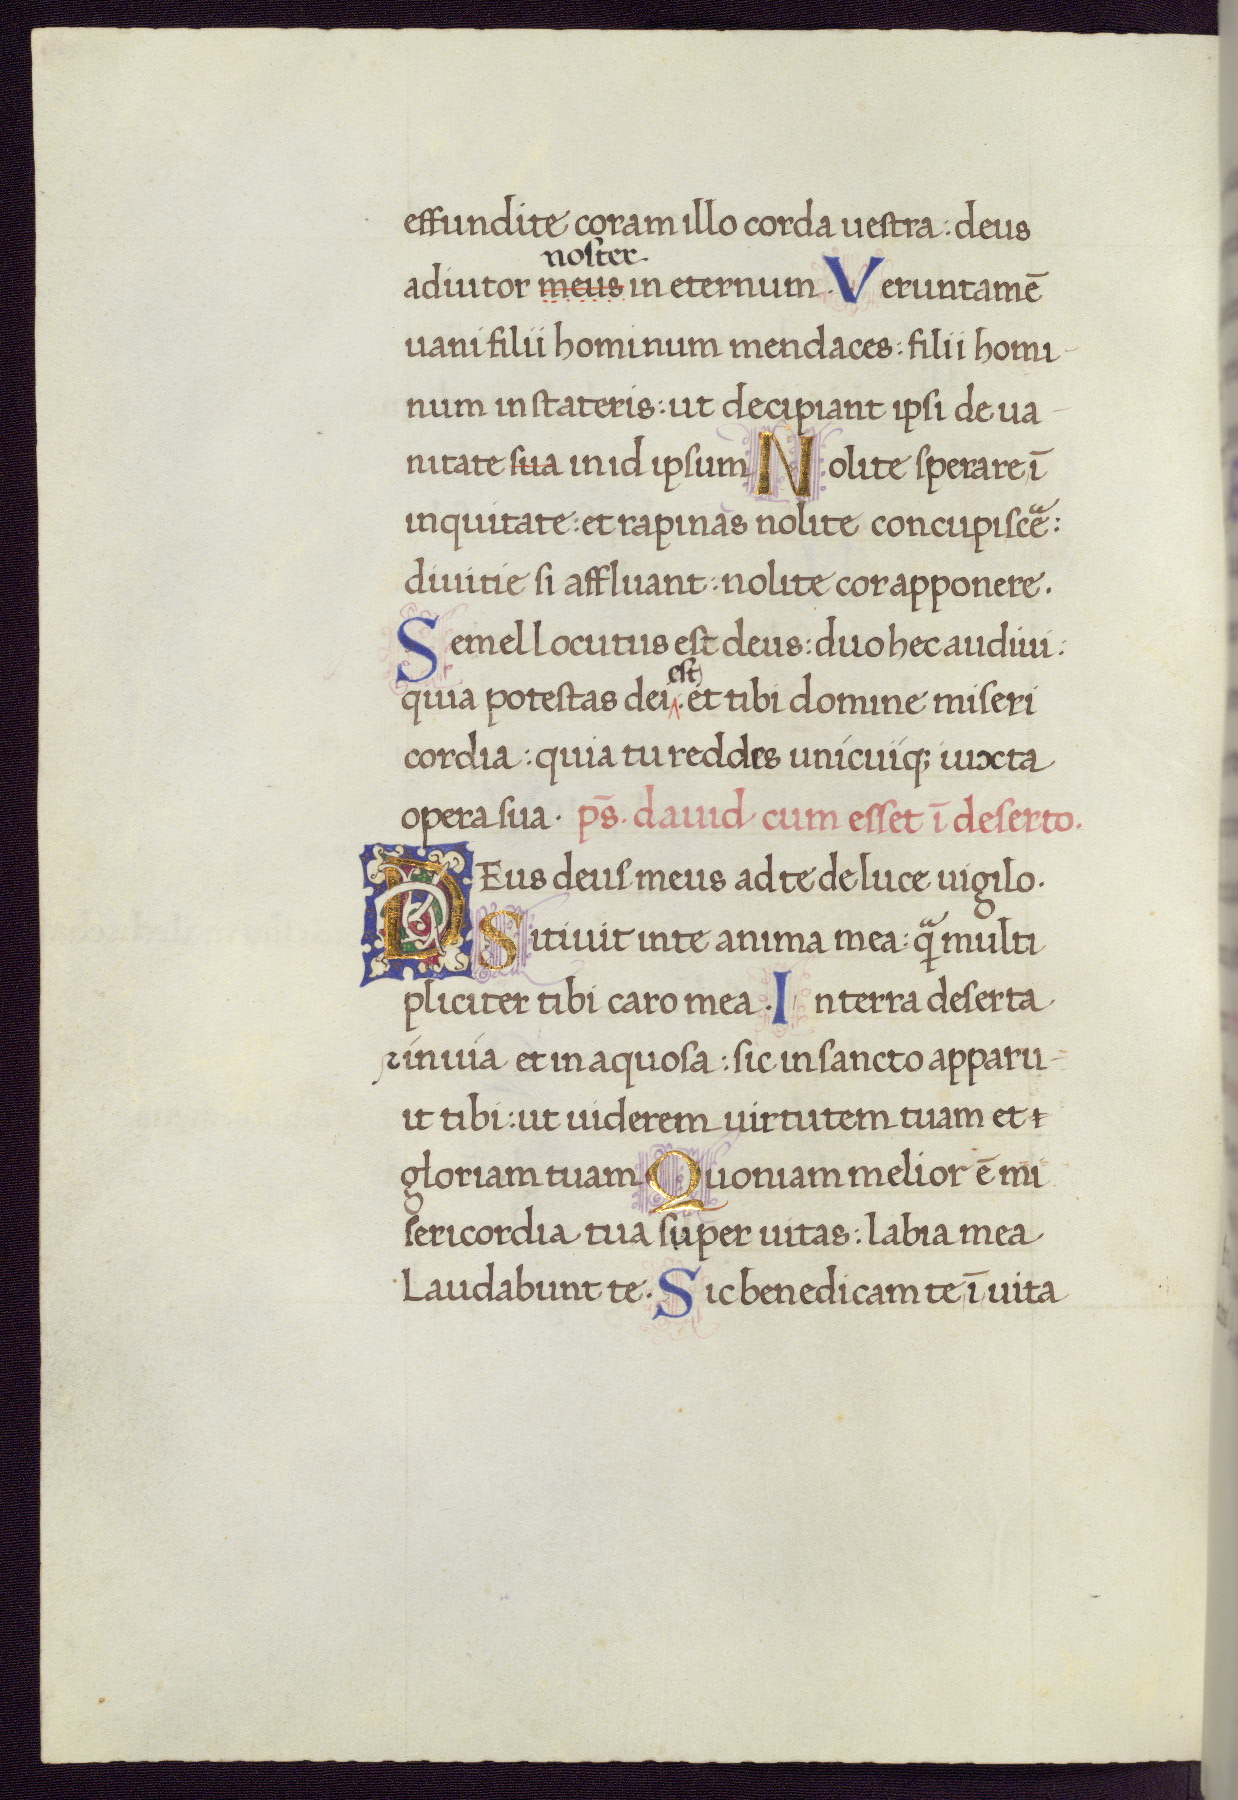 effundite coram illo corda uestra: deus
noster
adiutor meus in eternum. Veruntamē
uani filii hominum mendaces: filii homi-
num in stateris: ut decipiant ipsi de ua-
nitate sua in id ipsum Nolite sperare ī
inquitate: et rapinas nolite concupiscē:
diuitie si affluant: nolite cor apponere.
Semel locutus est deus: duo hec audiui:
est
quia potestas dei. et tibi domine miseri
cordia: quia tu reddes unicuiq; iuxta
opera sua. ps̄. dauid cum esset ī deserto.
DEus deus meus ad te de luce uigilo.
Sitiuit in te anima mea: qͣ multi
pliciter tibi caro mea. In terra deserta
⁊ inuia et in aquosa: sic in sancto apparu-
it tibi: ut uiderem uirtutem tuam et
gloriam tuam Quoniam melior ē mi
sericordia tua super uitas: labia mea
Laudabunt te. Sic benedicam te ī uita